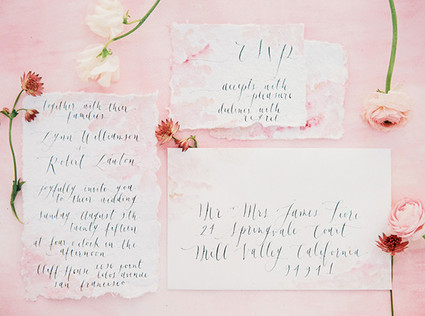 together with their
families
Lynn Williamson
&
Robert Lauton
joyfully invite you
to their wedding
sunday August 9th
twenty fifteen
at four o'clock in the
afternoon
Cliff House point
lobos avenue
san francisco
rsvp
accepts with
pleasure
declines with
regret
Mr Mrs James
21 Springvale Court
Mill Valley California
94941